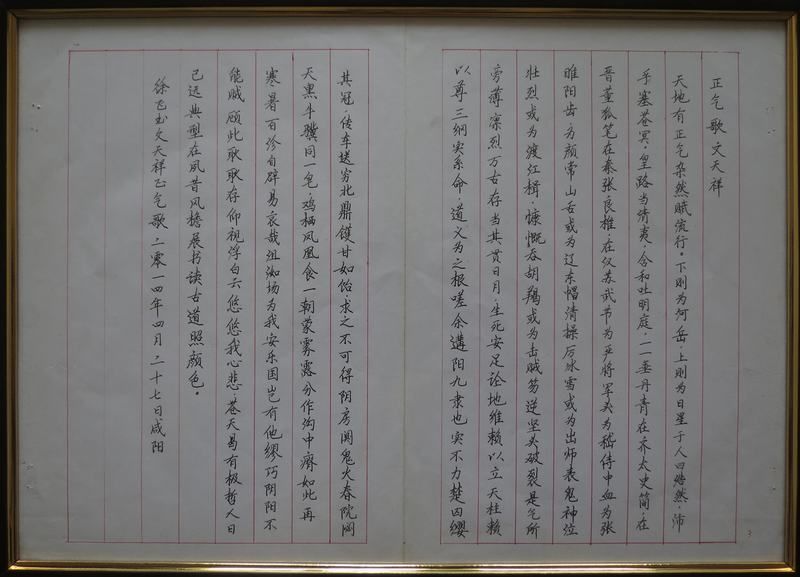 正气歌 文天祥
天地有正气杂然赋流行。下则为河岳·上则为日星于人曰浩然·沛
乎塞苍冥·皇路当清夷·含和吐明庭·一一垂丹青在齐太史简·在
晋董狐笔在秦张良椎在汉苏武节为严将军头为嵇侍中血为张
睢阳齿·为颜常山舌或为辽东帽清操厉冰雪或为出师表鬼神泣
壮烈或为渡江楫·慷慨吞胡羯或为击贼笏逆竖头破裂是气所
旁薄凛烈万古存当其贯日月·生死安足论地维赖以立天柱赖
以尊三纲实系命·道义为之根嗟余遘阳九隶也实不力楚囚缨
其冠·传车送穷北鼎镬甘如饴·求之不可得阴房阒鬼火春院闷
天黑牛骥同一皂·鸡栖凤凰食一朝蒙雾露分作沟中瘠如此再
寒暑百沴自辟易哀哉沮洳场为我安乐国岂有他缪巧阴阳不
能贼顾此耿耿存仰视浮白云悠悠我心悲·苍天曷有极哲人日
已远典型在夙昔风檐展书读古道照颜色。
徐飞书文天祥正气歌二零一四年四月二十七日咸阳
3